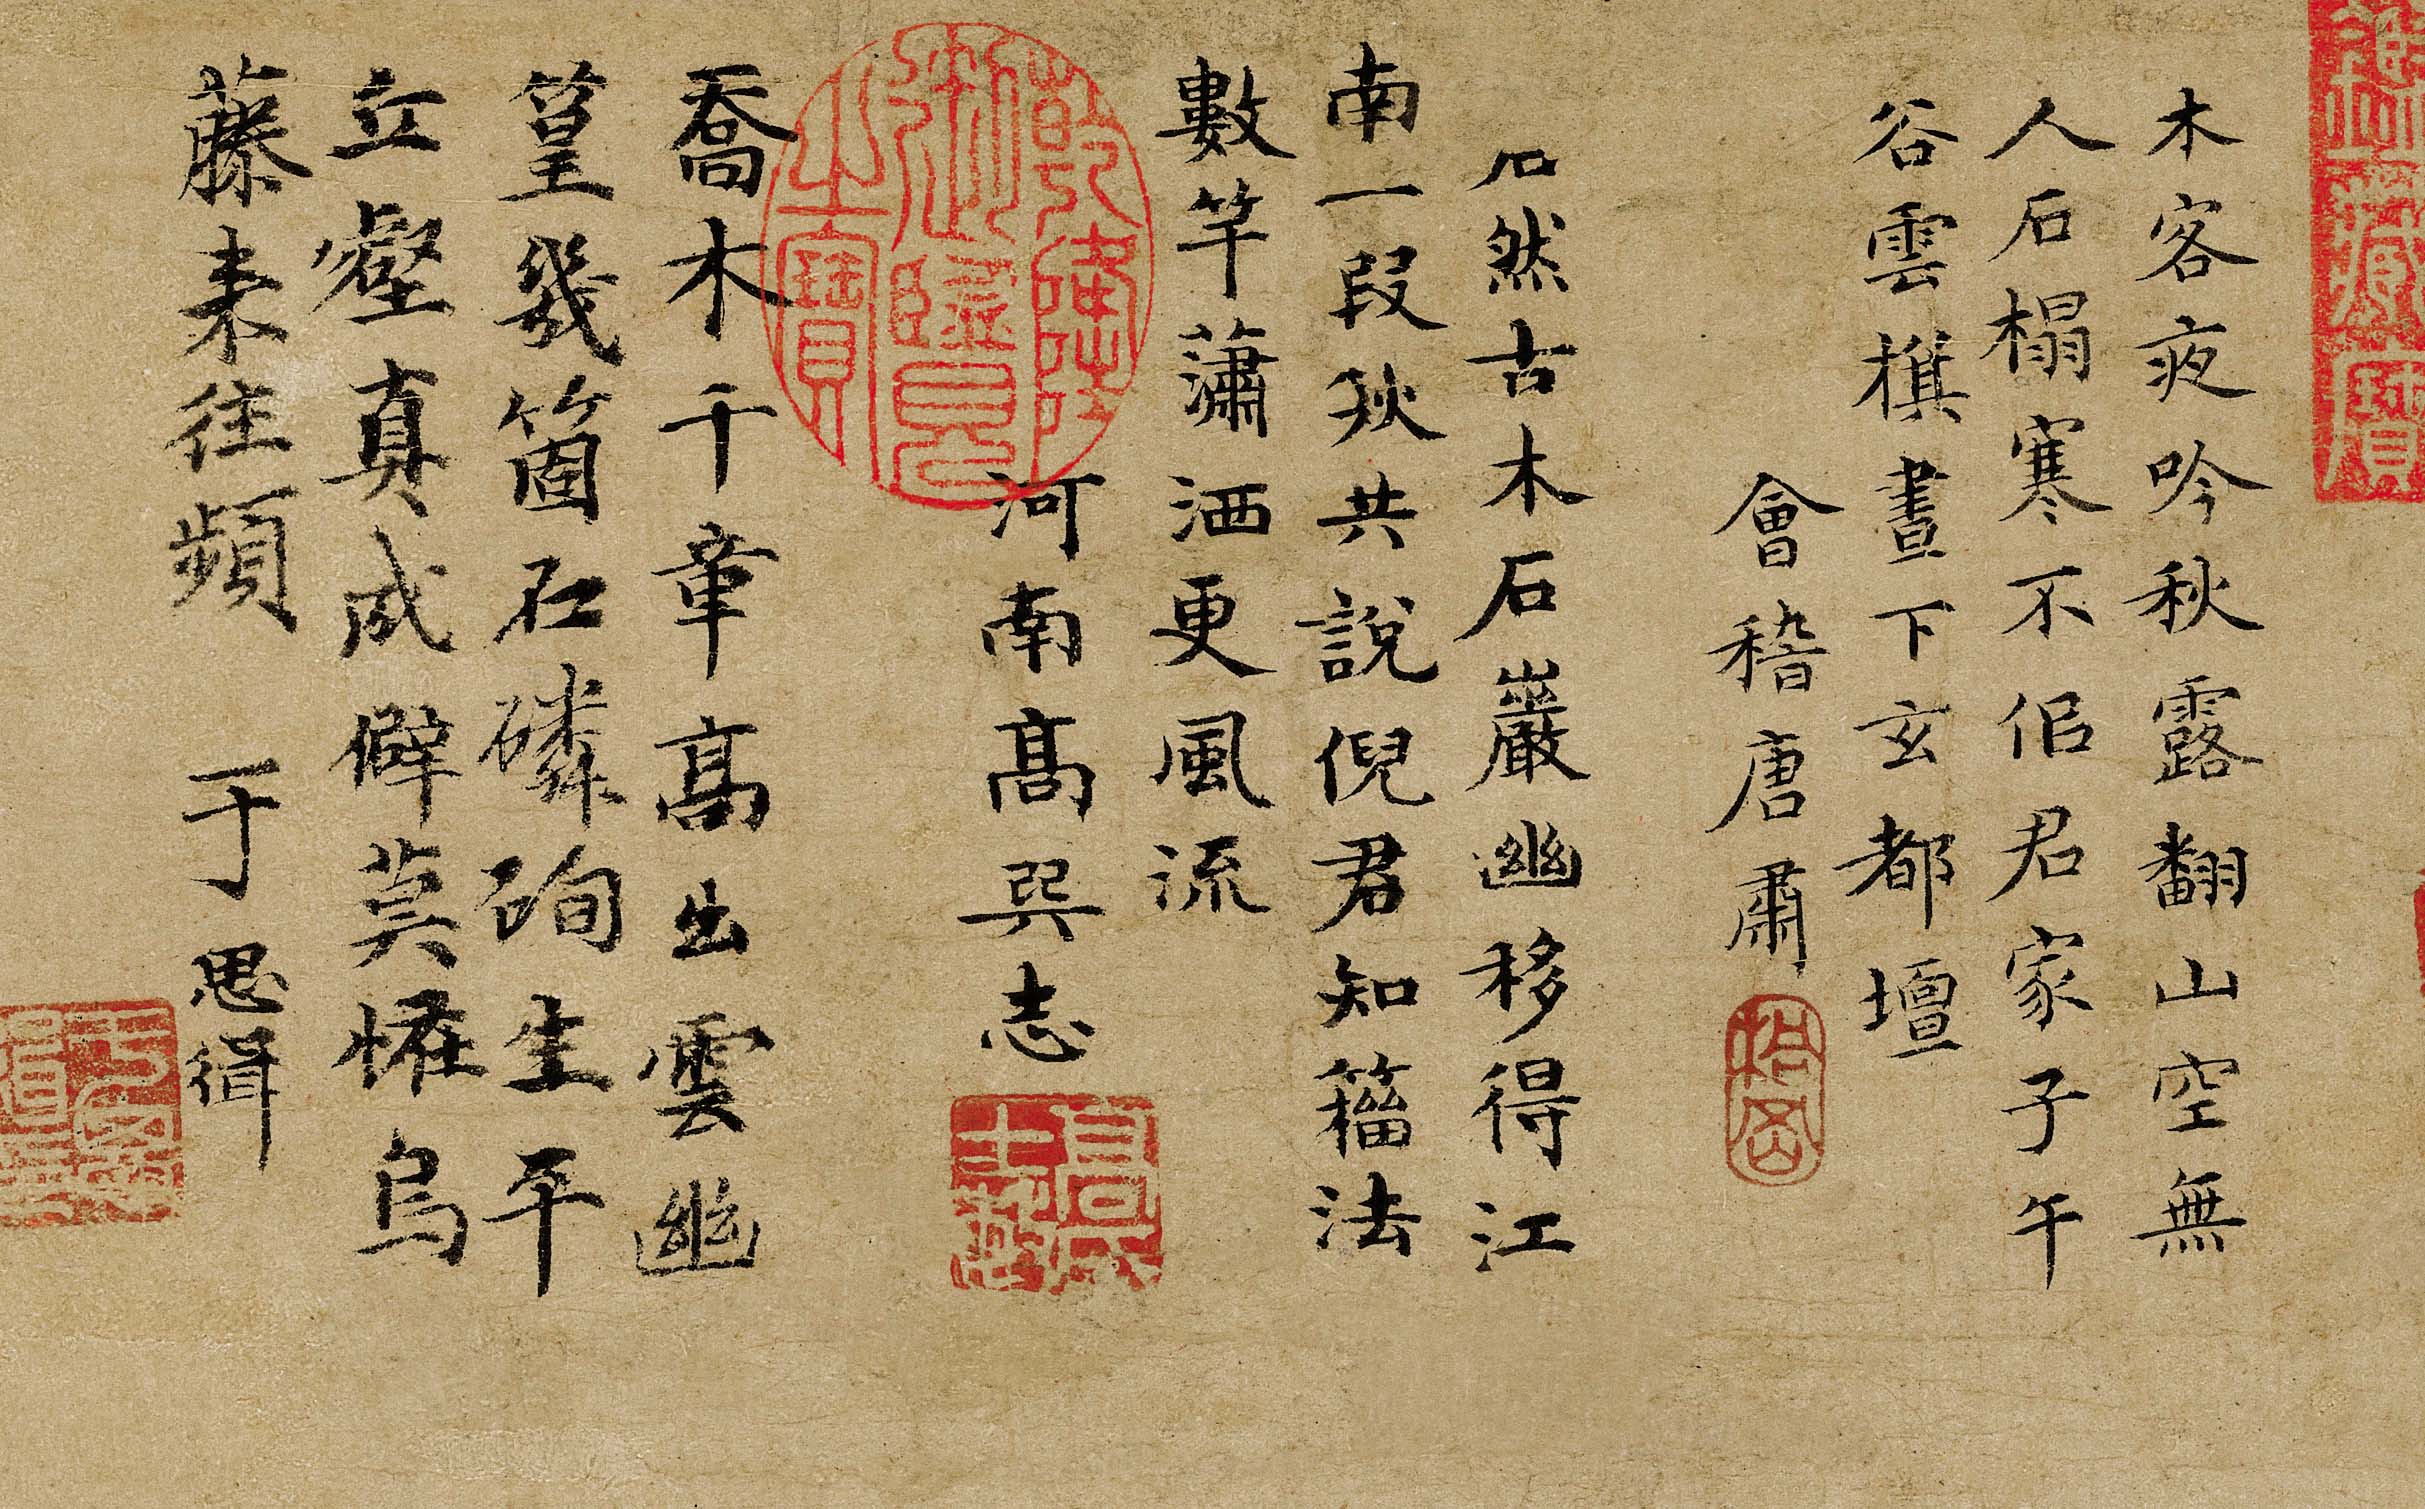 木客夜吟秋露翻山空無
人石榻寒不佀君家子午
谷雲旗晝下玄都壇
會稽唐肅
然古木石巖幽移得江
南一段秋共說倪君知籀法
數竿瀟洒更風流
河南高巽志
乾隆御覽之寶
喬木千章高出雲幽
篁幾箇石磷峋生平
丘壑真成僻莫怪烏
藤来往頻 于思緝